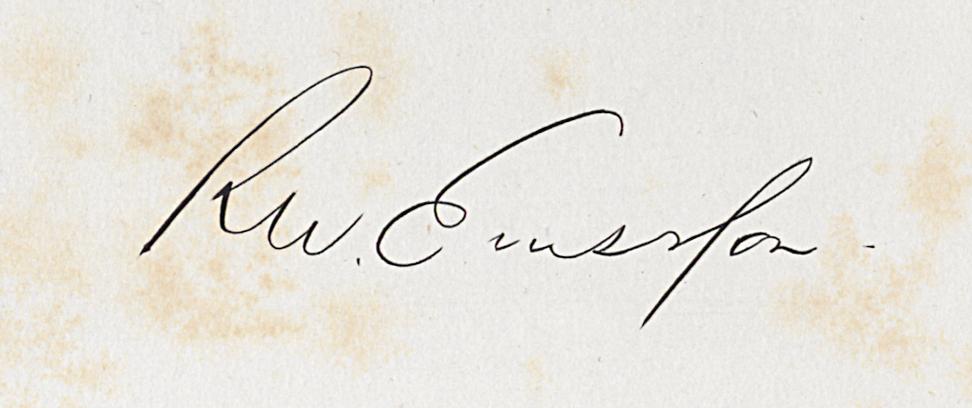 R.W. Emerson.